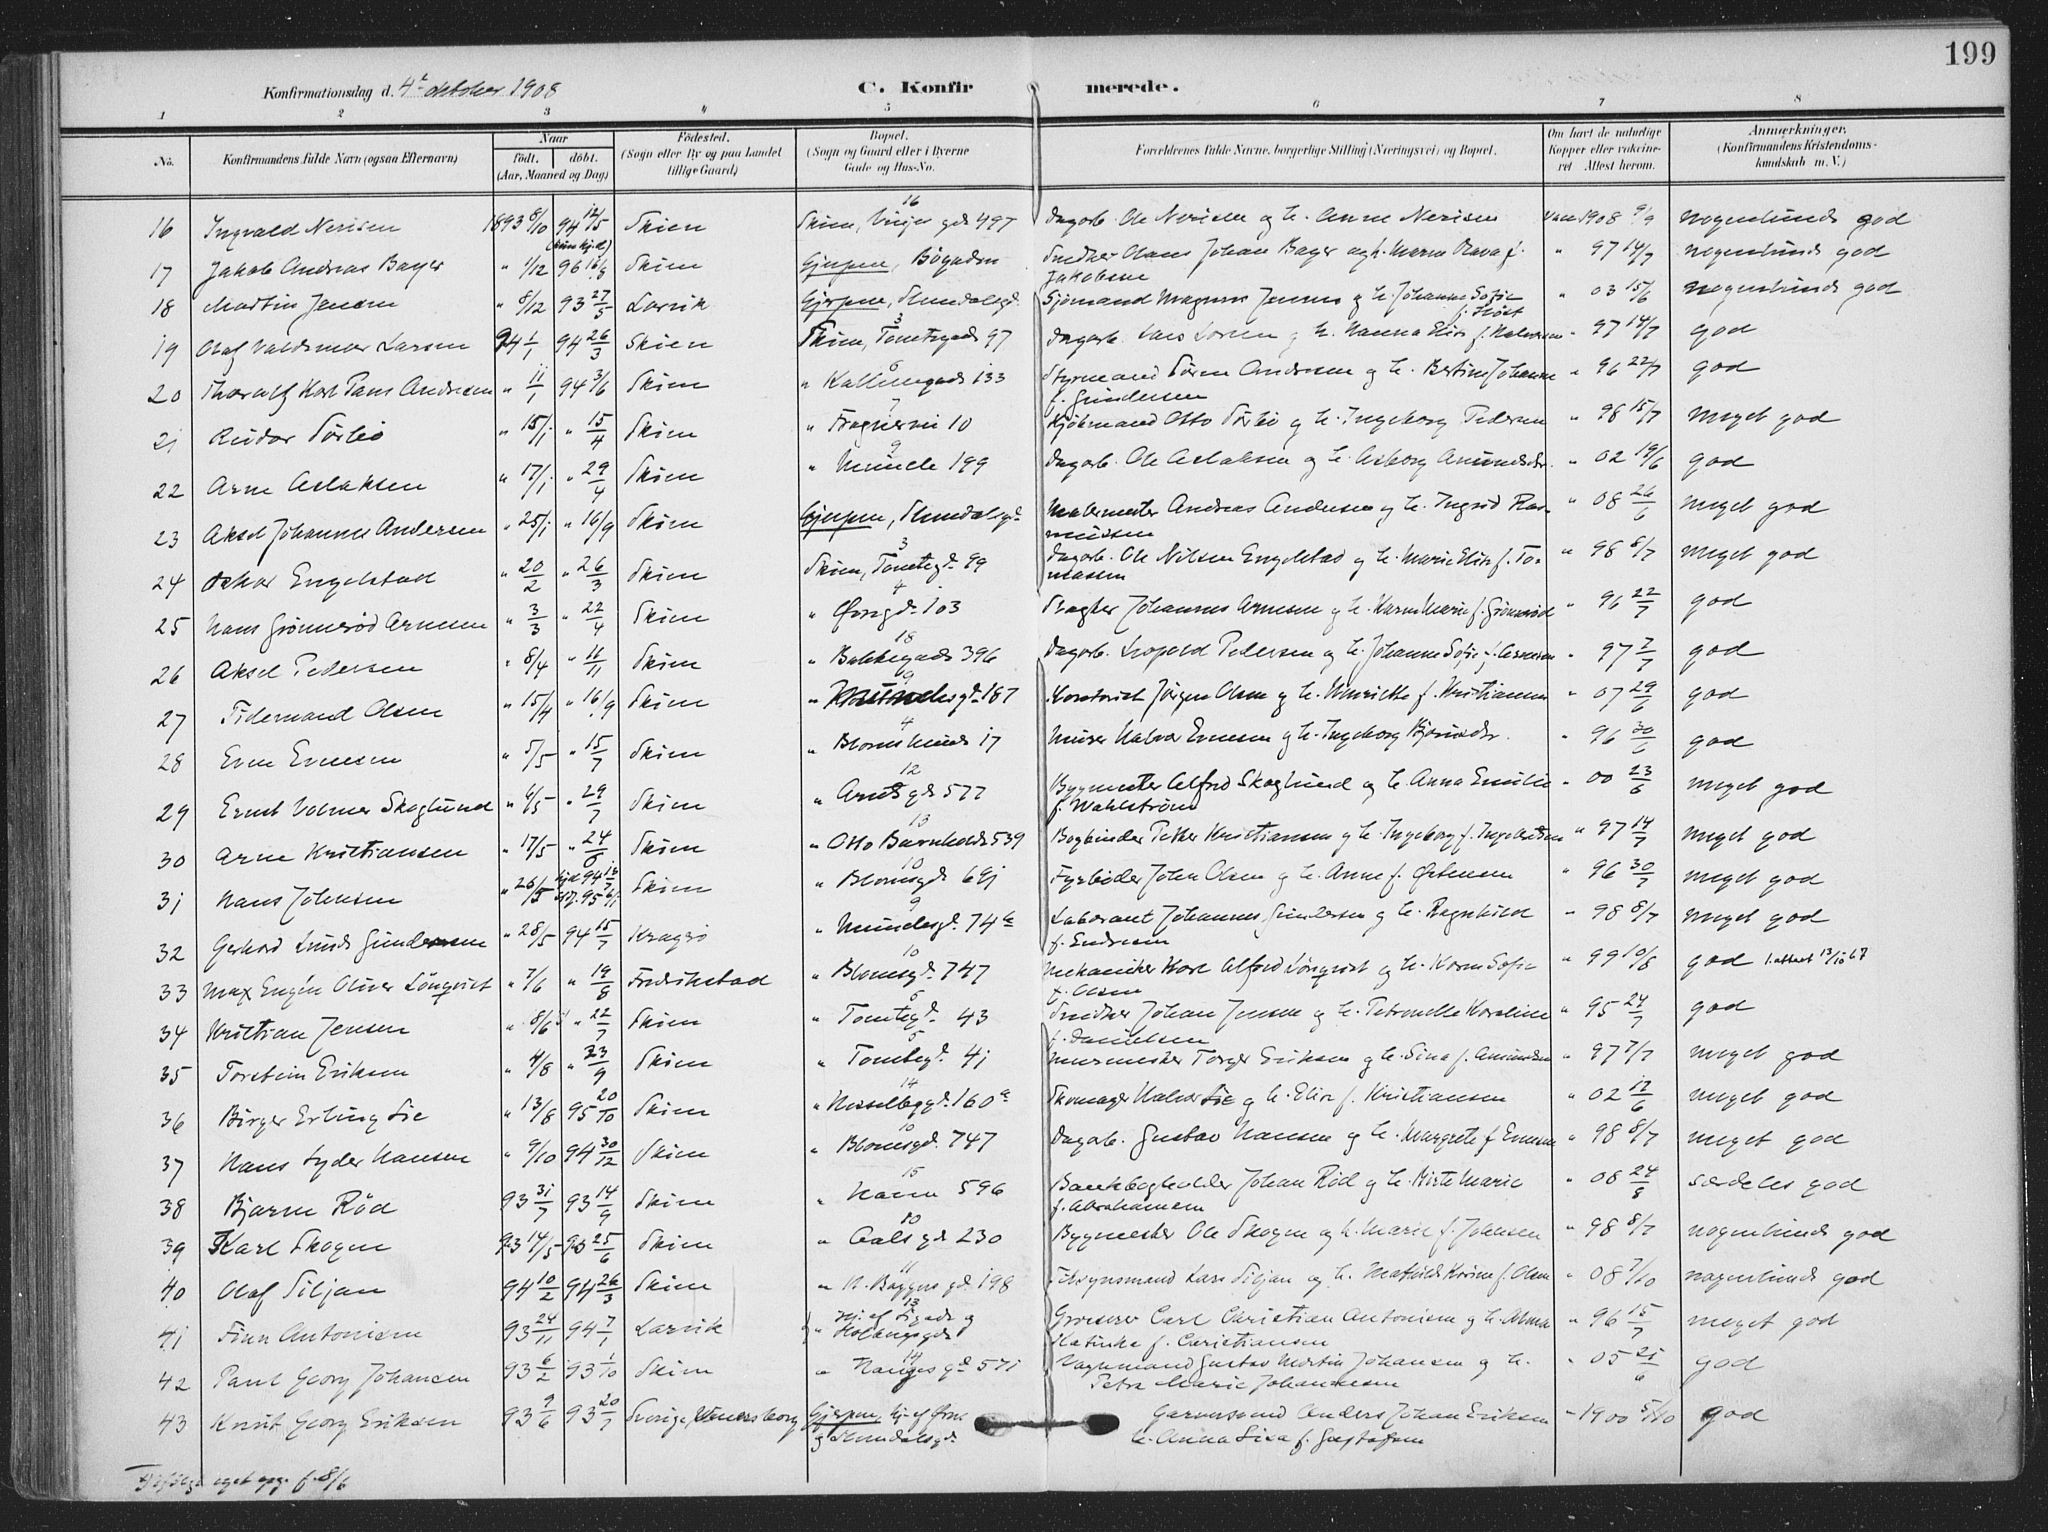 199
Konfirmationsdag d. 4de oktober 1908 C. Konfirmerede.
1 2 3 4 5 6 7 8
No. Konfirmandens fulde Navn (ogsaa Efternavn) Naar født. døbt. (Aar, Maaned og Dag) Fødested. (Sogn eller By og paa Landet tillige Gaard) Bopæl. (Sogn og Gaard eller i Byerne Gade og Hus-No. Forældrenes fulde Navne, borgerlige Stilling (Næringsvei) og Bopæl. Om havt de naturlige Kopper eller vaccineret Attest herom. Anmærkninger. (Konfirmandens Kristendomskundskab m. V.)
16 Ingvald Nerisen 1893 8/10 94 12/5 Skien Skien, 497 Dagarb. Ole Nerisen og h. Anne Nerisen Vacc 1908 9/9 nogenlunds god
17 Jakob Andreas Bager " 1/12 96 16/8 Skien Gjerpen, Bøgaden Snedker Olaus Johan Bager og h. Maren f. Jakobsen " 97 14/7 nogenlunds god
18 Martin Jensen " 8/12 93 27/5 Larvik Gjerpen, Slemdalsgd. Sjømand Magnus Jensen og h. Johanne Sofie f. Høst " 03 15/6 nogenlunds god
19 Olaf Valdemar Larsen 94 1/1 94 26/3 Skien Skien, 3 Tomtegade 97 Dagarb. Lars Larsen og h. Hanna Elise f. Halvorsen " 97 14/7 god
20 Thoralf Karl Pans Andresen " 11/1 94 3/6 Skien " 133 Styrmand Søren Andresen og h. Bertine Johanne f. Gundersen " 96 22/7 god
21 Reidar Sørbø " 15/1 " 15/4 Skien " 7 Frognervei 10 Kjøbmand Otto Sørbø og h. Ingeborg Pedersen " 98 15/7 meget god
22 Arne Aslaksen " 17/1 " 29/4 Skien " 9 Muncle 199 Dagarb. Ole Aslaksen og h. Asborg Amundsdr. " 02 19/6 god
23 Aksel Johannes Andersen " 25/1 " 16/9 Skien Gjerpen, Slemdalsgd. Malermester Andreas Andersen og h. Ingrid Rasmussen " 08 26/6 meget god
24 Oskar Engelstad " 20/2 " 26/3 Skien Skien, 3 Tomtegd. 99 Dagarb. Ole Nilsen Engelstad og h. Marie Elise f. Tomassen " 98 8/7 meget god
25 Hans Grønnerød Arnesen " 3/3 " 22/4 Skien " 4 Øvregd. 103 Slagter Johannes Arnesen og h. Karen Marie f. Grønnerød " 96 22/7 god
26 Aksel Pedersen " 8/4 " 11/11 Skien " 18 Bakkegade 396 Dagarb. Leopold Pedersen og h. Johanne Sofie f. Arnesen " 97 7/7 god
27 Tidemand Olsen " 15/4 " 16/9 Skien " 9 187 Jørgen Olsen og h. Henriette f. Kristiansen " 07 29/6 god
28 Even Evensen " 5/5 " 15/7 Skien " 4 17 Murer Halvor Evensen og h. Ingeborg " 96 30/6 god
29 Ernst Volmer Skoglund " 6/5 " 29/7 Skien " 12 Arntsgd 577 Bygmester Alfred Skoglund og h. Anna Emilie f. Wahlstrøm " 00 23/6 meget god
30 Arne Kristiansen " 17/5 " 24/6 Skien " 13 Otto Barnholdts 539 Bogbinder Petter Kristiansen og h. Ingeborg f. " 97 14/7 meget god
31 Hans Johnsen " 26/5 hjd 94 13/7 Skien " 10 Blomsgd 69j Fyrbøder John Olsen og h. Anne f. Østensen " 96 30/7 meget god
32 Gerhard Lunds Gundersen " 28/5 94 15/7 Kragerø " 9 Munchsgd. 74a Laborant Johannes Gundersen og h. Ragnhild f. Endresen " 98 8/7 meget god
33 Max Eugén Oliver Lönqvist " 7/6 " 19/8 Fredrikstad " 10 Blomsgd. 747 Mekaniker Karl Alfred Lönqvist og h. Karen Sofie f. Olsen " 99 10/8 god 1. attest 13/10 67
34 Kristian Jensen " 8/6 " 22/7 Skien " 5 Tomtegd. 43 Snedker Johan Jensen og h. Petronelle Karoline f. Danielsen " 95 24/7 god
35 Torstein Eriksen " 4/8 " 23/9 Skien " 5 Tomtegd. 41 Murmester Torger Eriksen og h. Sina f. Amundsen " 97 7/7 meget god
36 Birger Erling Lie " 13/8 95 20/10 Skien " 14 Hesselbgd. 160a Skomager Halvor Lie og h. Elise f. Kristiansen " 02 17/6 meget god
37 Hans Lyder Hansen " 9/10 94 30/12 Skien " 10 Blomsgd. 747 Dagarb. Gustav Hansen og h. Margrete f. Evensen " 98 8/7 meget god
38 Bjarne Rød 93 31/7 93 14/9 Skien " 15 Havn 596 Bankbogholder Johan Rød og h. Kirste Marie f. Abrahamsen " 08 24/8 særdeles god
39 Karl Skogen 93 14/5 93 25/6 Skien " 10 Aalsgd 230 Bygmester Ole Skogen og h. Marie f. Johnsen " 98 8/7 nogenlunds god
40 Olaf Siljan 94 10/2 94 26/3 Skien " 11 N. Baggers gd 198 Tilsynsmand Lars Siljan og h. Mathilde Karine f. Olsen " 08 7/10 nogenlunds god
41 Finn Antonisen 93 24/11 94 7/1 Larvik " 13 Hj. af og Grosserer Carl Christian Antonisen og h. Alma Katinka f. Christiansen " 96 15/7 meget god
42 Paul Georg Johansen 93 6/2 93 1/10 Skien " 14 Hanges gd 571 Vognmand Gustav Martin Johansen og h. Petra Marie Johannesen " 05 21/6 god
43 Knut Georg Eriksen 93 9/6 93 20/7 Sverige, Venersborg Gjerpen, hj. af Øvre og Slemdalsgd. Garversvend Anders Johan Eriksen h. Anna Lisa f. Gustafsen " 1900 5/10 god
f. 8/6